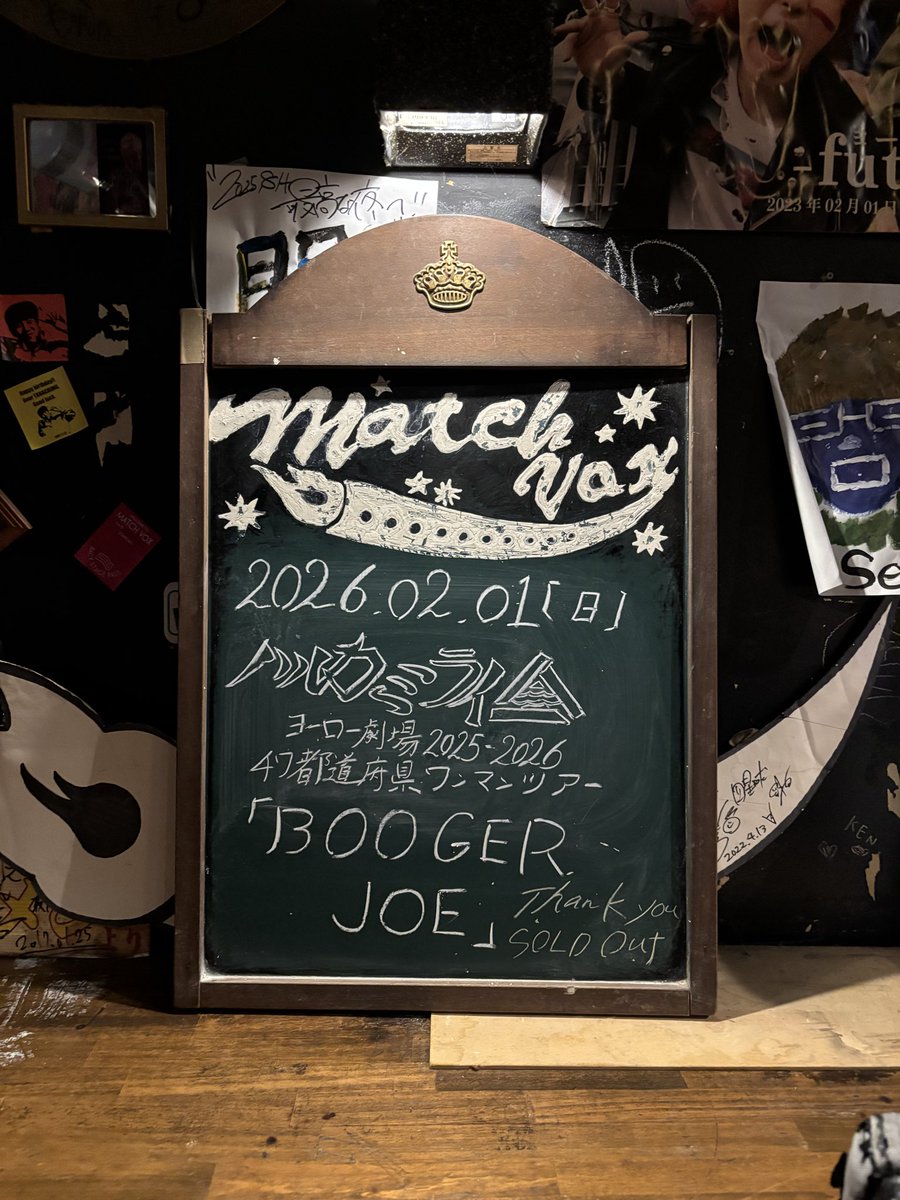 2025.8.4
最高な夜を!!
-fut
2023年02月01日
match
vox
2026.02.01[日]
ハルカミライ
ヨーロー劇場 2025-2026
47都道府県ワンマンツアー
「BOOGER
JOE」
Thank you
SOLD OUT
Happy Birthday!!
MATCH VOX
Se
2022.4.13
KEN